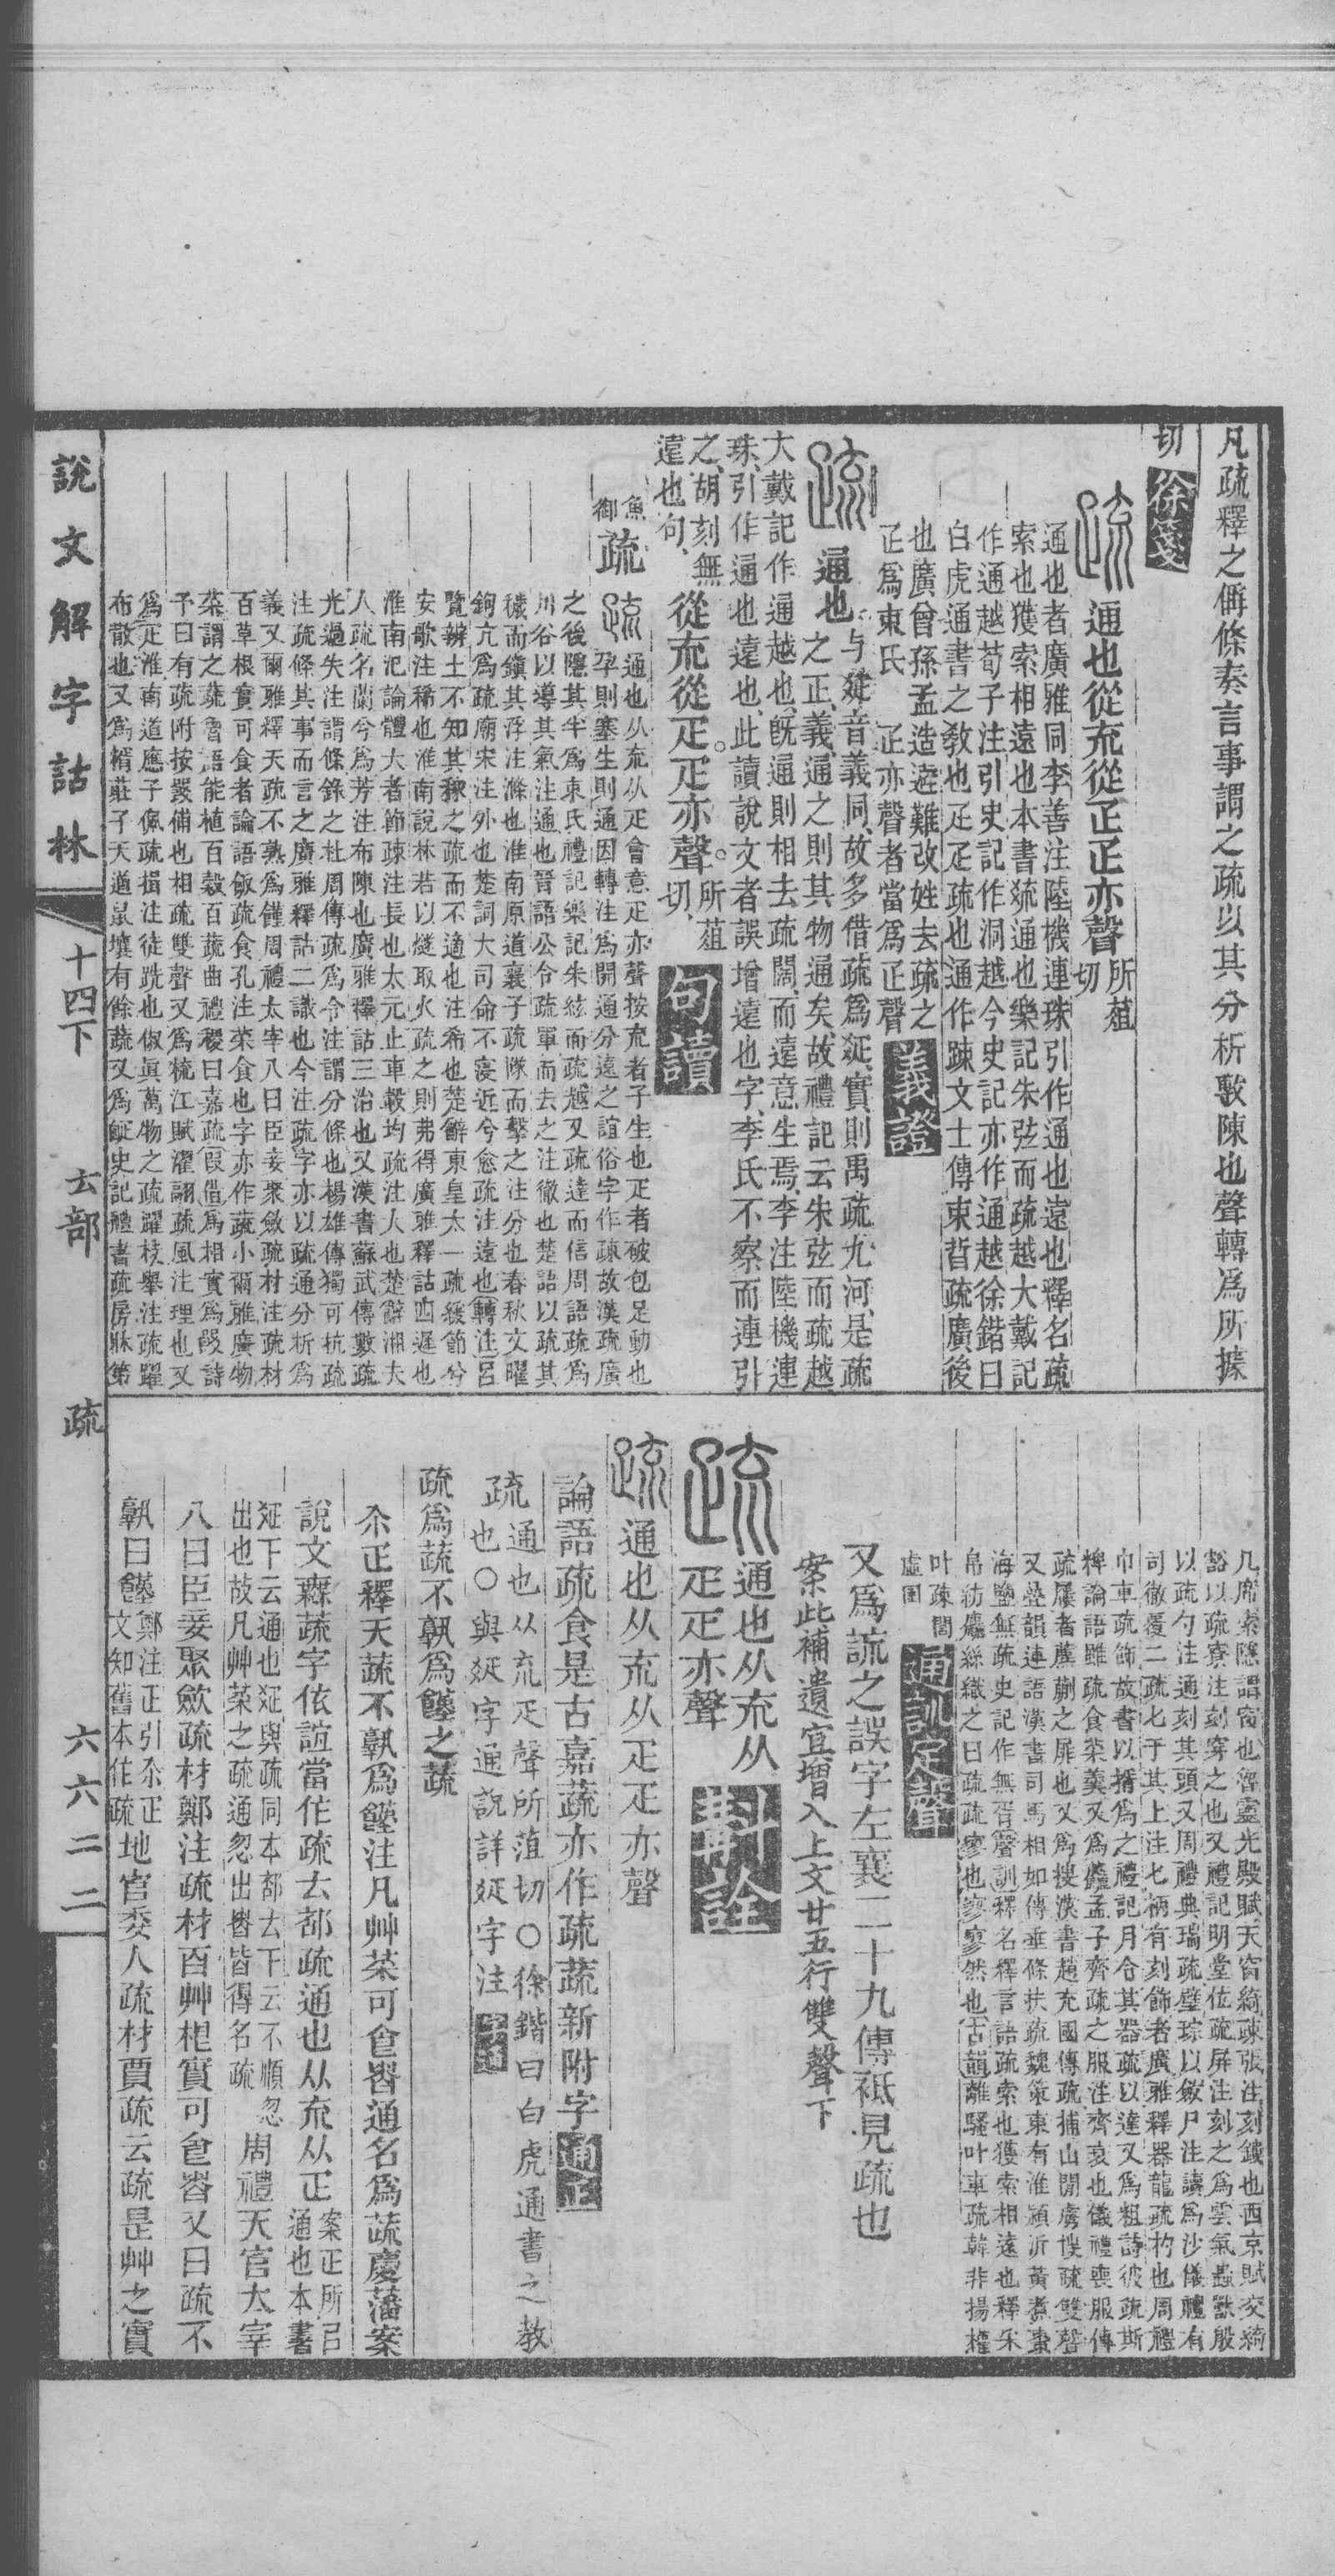 凡疏釋之偁條奏言事謂之疏以其分析敶陳也聲轉爲所據
切 徐箋
通也從㐬從疋疋亦聲 所葅切
通也者廣雅同李善注陸機連珠引作通也遠也釋名疏
索也獲索相遠也本書㲾通也樂記朱弦而疏越大戴記
作通越荀子注引史記作洞越今史記亦作通越徐鍇曰
白虎通書之敎也疋疋疏也通作踈文士傳束晳疏廣後
也廣曾孫孟造避難改姓去疏之
疋爲束氏 疋亦聲者當爲疋聲 義證
通也 与𤕟音義同故多借疏爲𤕟實則禹疏九河是疏
之正義通之則其物通矣故禮記云朱弦而疏越
大戴記作通越也旣通則相去疏闊而遠意生焉李注陸機連
珠引作通也遠也此讀說文者誤增遠也字李氏不察而連引
之胡刻無
遠也句 從㐬從疋疋亦聲 所葅切 句讀
魚御 疏
通也从㐬从疋會意疋亦聲按㐬者子生也疋者破包足動也
孕則塞生則通因轉注爲開通分遠之誼俗字作疎故漢疏廣
之後隱其半爲束氏禮記樂記朱絃而疏越又疏達而信周語疏爲
川谷以導其氣注通也晉語公令疏軍而去之注徹也楚語以疏其
穢而鎭其浮注滌也淮南原道襄子疏隊而擊之注分也春秋文曜
鉤亢爲疏廟宋注外也楚詞大司命不寖近兮愈疏注遠也轉注呂
覽辨土不知其稼之疏而不適也注希也楚辭東皇太一疏緩節兮
安歌注稀也淮南說林若以燧取火疏之則弗得廣雅釋詁四遲也
淮南氾論體大者節疎注長也太元止車轂均疏注大也楚辭湘夫
人疏石蘭兮爲芳注布陳也廣雅釋詁三治也又漢書蘇武傳數疏
光過失注謂條錄之杜周傳疏爲令注謂分條也楊雄傳獨可抗疏
注疏條其事而言之廣雅釋詁二識也今注疏字亦以疏通分析爲
義又爾雅釋天疏不熟爲饉周禮太宰八曰臣妾聚斂疏材注疏材
百草根實可食者論語飯疏食孔注菜食也字亦作蔬小爾雅廣物
菜謂之蔬魯語能植百穀百蔬曲禮稷曰嘉疏假借爲相實爲𥿇詩
予曰有疏附按叢俌也相疏雙聲又爲梳江賦濯翮疏風注理也又
爲疋淮南道應子佩疏揖注徒跣也俶眞萬物之疏躍枝舉注疏躍
布散也又爲糈莊子天道鼠壤有餘蔬又爲𤴙史記禮書疏房牀第
几席索隱謂窗也魯靈光殿賦天窗綺疎張注刻鏤也西京賦交綺
豁以疏寮注刻穿之也又禮記明堂位疏屏注刻之爲雲氣蟲獸殷
以疏勺注通刻其頭又周禮典瑞疏璧琮以斂尸注讀爲沙儀禮有
司徹覆二疏匕于其上注匕柄有刻飾者廣雅釋器龍疏杓也周禮
巾車疏飾故書以揟爲之禮記月令其器疏以達又爲粗詩彼疏斯
粺論語雖疏食菜羹又爲麤孟子齊疏之服注齊衰也儀禮喪服傳
疏屨者藨蒯之菲也又爲捜漢書趙充國傳疏捕山間虜惈疏雙聲
又疊韻連語漢書司馬相如傳垂條扶疏魏策東有淮潁沂黃煮棗
海鹽無疏史記作無胥聲訓釋名釋言語疏索也獲索相遠也釋采
帛紡麤絲織之曰疏疏寥也寥寥然也古韻離騷叶車疏韓非揚搉
叶疎閭
虛圄 通訓定聲
又爲諕之誤字左襄二十九傳祗見疏也
案此補遺宜增入上文廿五行雙聲下
通也从㐬从
疋疋亦聲 斠詮
通也从㐬从疋疋亦聲
論語疏食是古嘉蔬亦作疏蔬新附字 通正
疏 通也从㐬疋聲所菹切〇徐鍇曰白虎通書之教
也〇與𤕟字通說詳𤕟字注
疏爲蔬不孰爲饉之蔬
尒疋釋天蔬不孰爲饉注凡艸菜可食者通名爲蔬慶藩案
說文無蔬字依誼當作疏𠫓部疏通也从㐬从疋 案疋所㠯通也本書
𤕟下云通也𤕟與疏同本部𠫓下云不順忽
出也故凡艸菜之疏通忽出者皆得名疏 周禮天官太宰
八曰臣妾聚斂疏材鄭注疏材百艸根實可食者又曰疏不
孰曰饉 鄭注正引尒疋文知舊本作疏 地官委人疏材賈疏云疏是艸之實
說文解字詁林 十四下 𠫓部 疏 六六二二